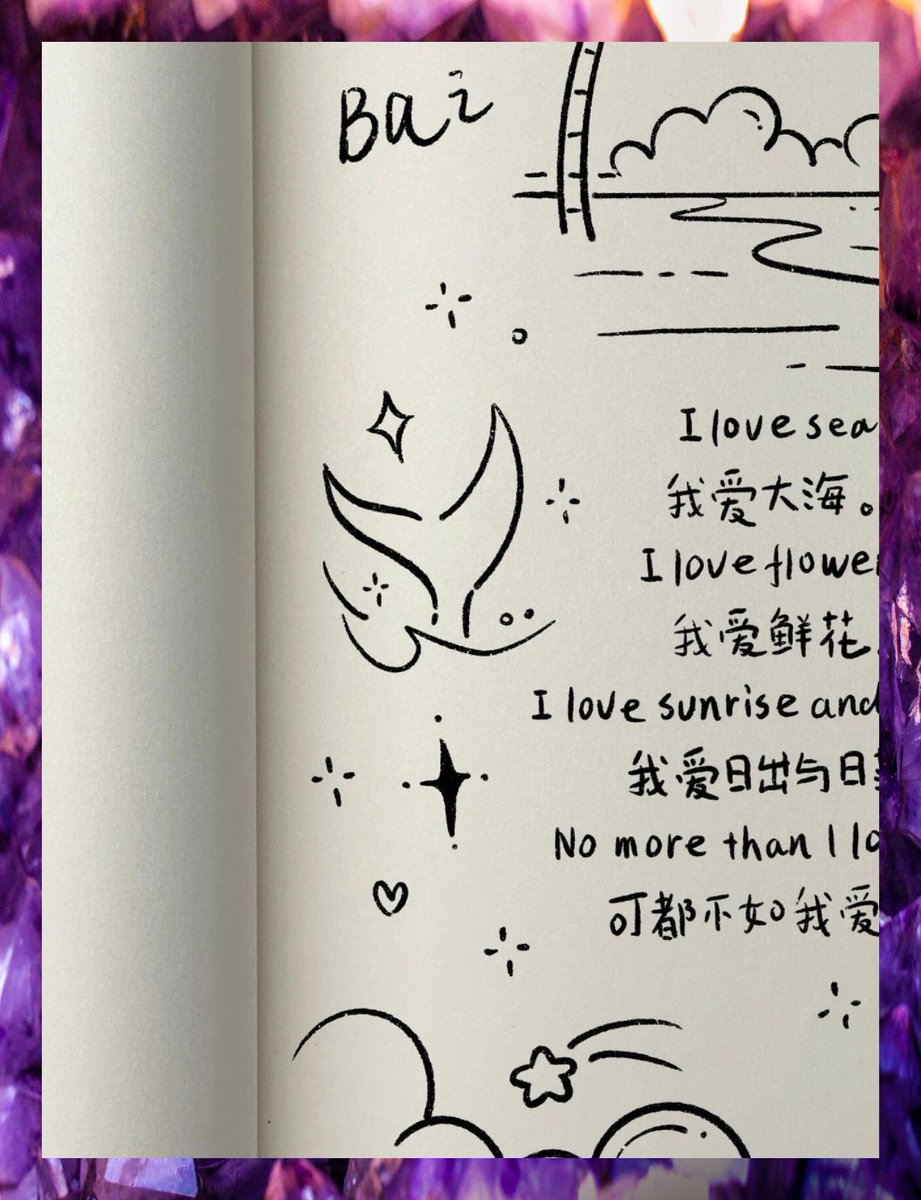 Bai
I love sea
我爱大海。
I love flowe
我爱鲜花
I love sunrise and
我爱日出与日
No more than I lo
可都不如我爱